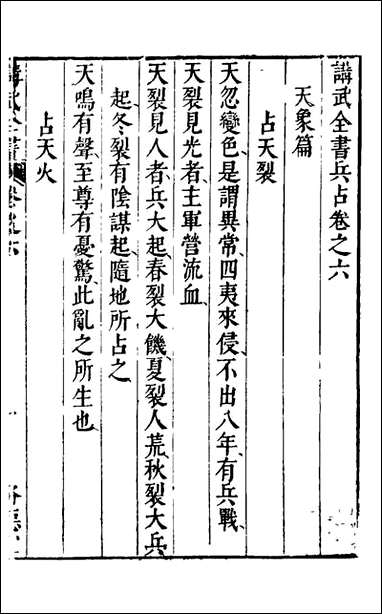 講武全書兵占卷之六
天象篇
占天裂
天忽變色是謂異常四夷來侵不出八年有兵戰
天裂見光者主軍營流血
天裂見人者兵大起春裂大饑夏裂人荒秋裂大兵
起冬裂有陰謀起隨地所占之
天鳴有聲至尊有憂驚此亂之所生也
占天火